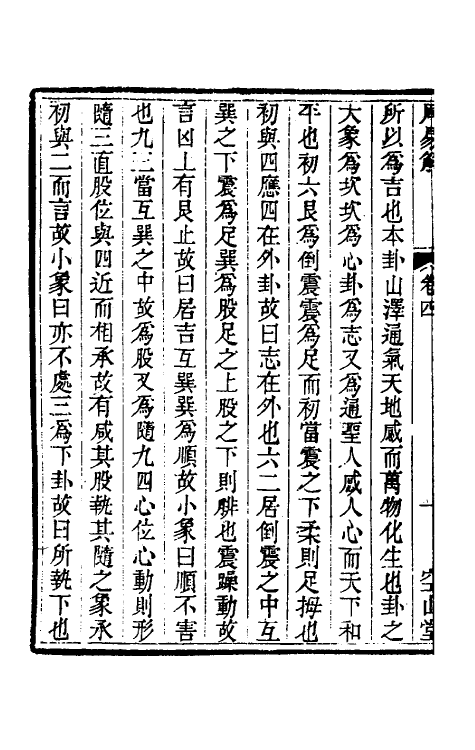 周易解 卷四 一 空山堂
所以為吉也本卦山澤通氣天地感而萬物化生也卦之
大象為坎坎為心卦為志又為通聖人感人心而天下和
平也初六艮為倒震震為足而初當震之下柔則足拇也
初與四應四在外卦故曰志在外也六二居倒震之中互
巽之下震為足巽為股足之上股之下則腓也震躁動故
言凶上有艮止故曰居吉互巽巽為順故小象曰順不害
也九三當互巽之中故為股又為隨九四心位心動則形
隨三直股位與四近而相承故有咸其股執其隨之象承
初與二而言故小象曰亦不處三為下卦故曰所執下也